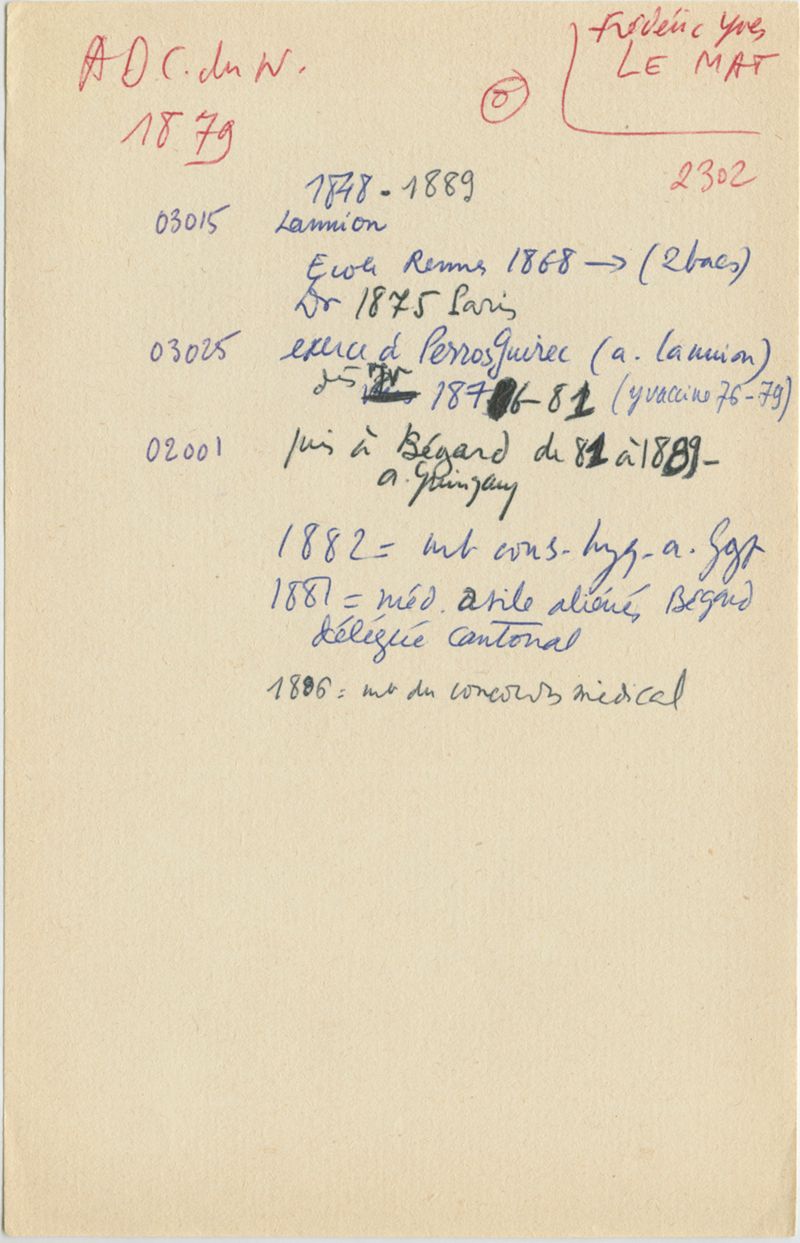 Frédéric Yves
LE MAT
A D C. du N.
1879
2302
1848 - 1889
03015 Lannion
Ecole Rennes 1868 → (2 bacs)
Dr 1875 Paris
03025 exerce à Perros Guirec (a. Lannion)
dès 1876-81 (y vaccine 76-79)
02001 puis à Bégard de 81 à 1889-
a. Guingamp
1882 = mb cons. hyg. a. Ggp
1881 = méd. asile aliénés Bégard
délégué cantonal
1886 = mb du concours médical